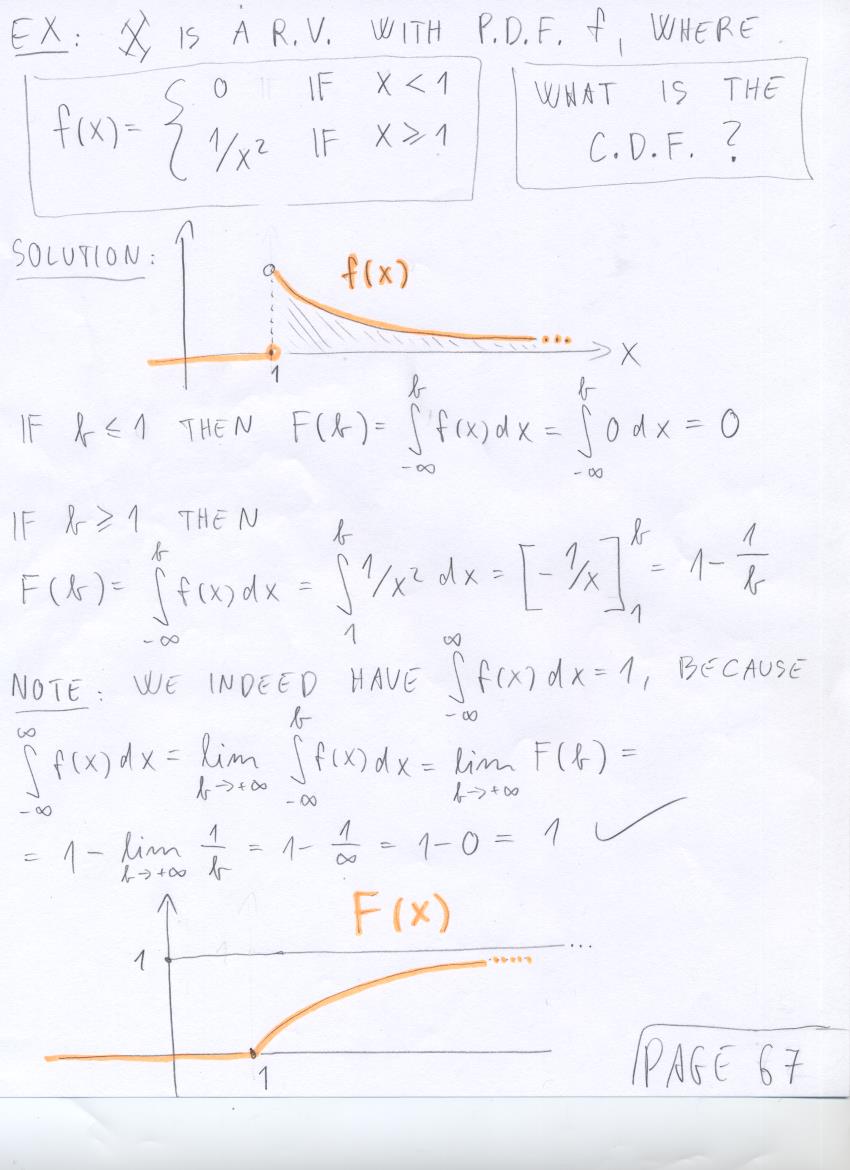 EX: X IS A R.V. WITH P.D.F. f, WHERE
f(x)= { 0 IF X < 1
1/x² IF X ⩾ 1
WHAT IS THE
C.D.F. ?
SOLUTION:
f(x)
1
X
IF b ≤ 1 THEN F(b)= ∫_{-∞}^{b} f(x)dx = ∫_{-∞}^{b} 0 dx = 0
IF b ⩾ 1 THEN
F(b)= ∫_{-∞}^{b} f(x)dx = ∫_{1}^{b} 1/x² dx = [-1/x]_{1}^{b} = 1- 1/b
NOTE: WE INDEED HAVE ∫_{-∞}^{∞} f(x)dx = 1, BECAUSE
∫_{-∞}^{∞} f(x)dx = lim_{b→+∞} ∫_{-∞}^{b} f(x)dx = lim_{b→+∞} F(b) =
= 1- lim_{b→+∞} 1/b = 1- 1/∞ = 1-0 = 1 ✓
F(x)
1
...
1
PAGE 67